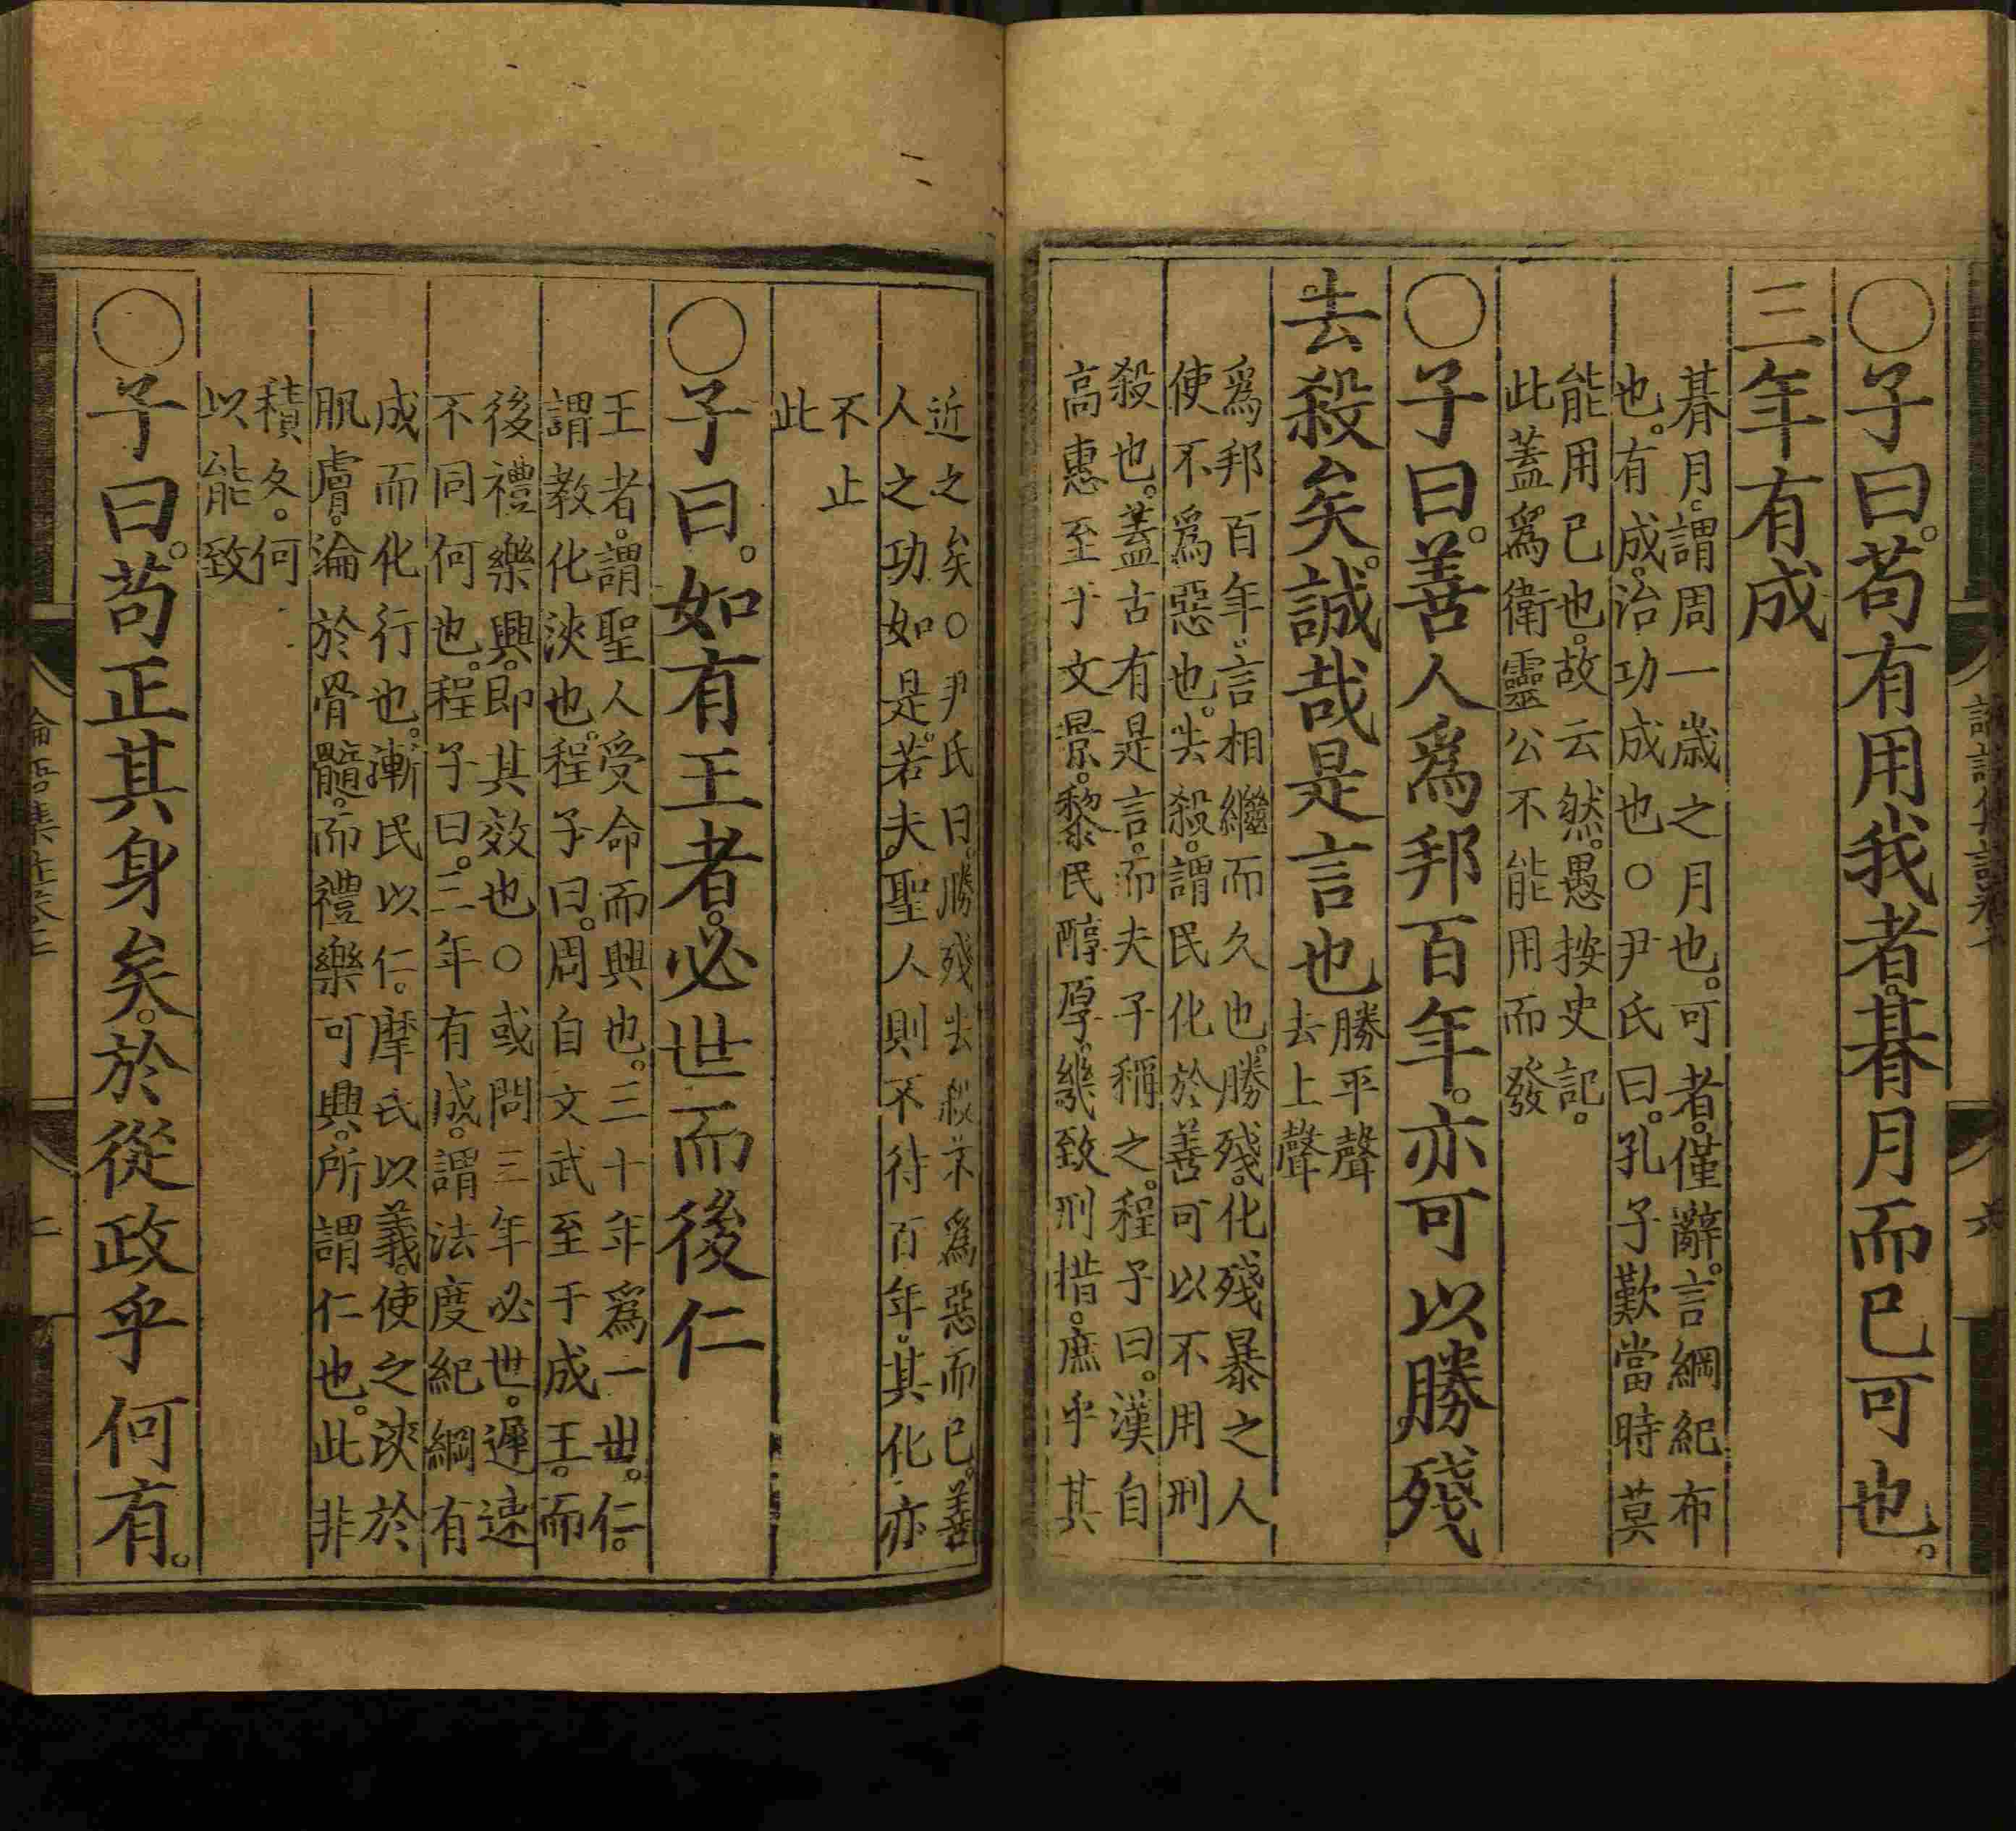 ○子曰。苟有用我者。朞月而已可也。
三年有成
朞月。謂周一歲之月也。可者。僅辭。言綱紀布
也。有成。治功成也○尹氏曰。孔子歎當時莫
能用已也。故云然。愚按史記。
此蓋爲衛靈公不能用而發
○子曰。善人爲邦百年。亦可以勝殘
去殺矣。誠哉是言也
勝平聲
去上聲
爲邦百年。言相繼而久也。勝殘。化殘暴之人
使不爲惡也。去殺。謂民化於善可以不用刑
殺也。蓋古有是言。而夫子稱之。程子曰。漢自
高惠至于文景。黎民醇厚。幾致刑措。庶乎其
近之矣○尹氏曰。勝殘去殺。不爲惡而已。善
人之功如是。若夫聖人則不待百年。其化亦
不止
此
○子曰。如有王者。必世而後仁
王者。謂聖人受命而興也。三十年爲一世。仁。
謂教化浹也。程子曰。周自文武至于成王。而
後禮樂興。即其效也○或問三年必世。遲速
不同何也。程子曰。三年有成。謂法度紀綱有
成而化行也。漸民以仁。摩民以義。使之浹於
肌膚。淪於骨髓。而禮樂可興。所謂仁也。此非
積久。何
以能致
○子曰。苟正其身矣。於從政乎何有。
論語集註卷七
二